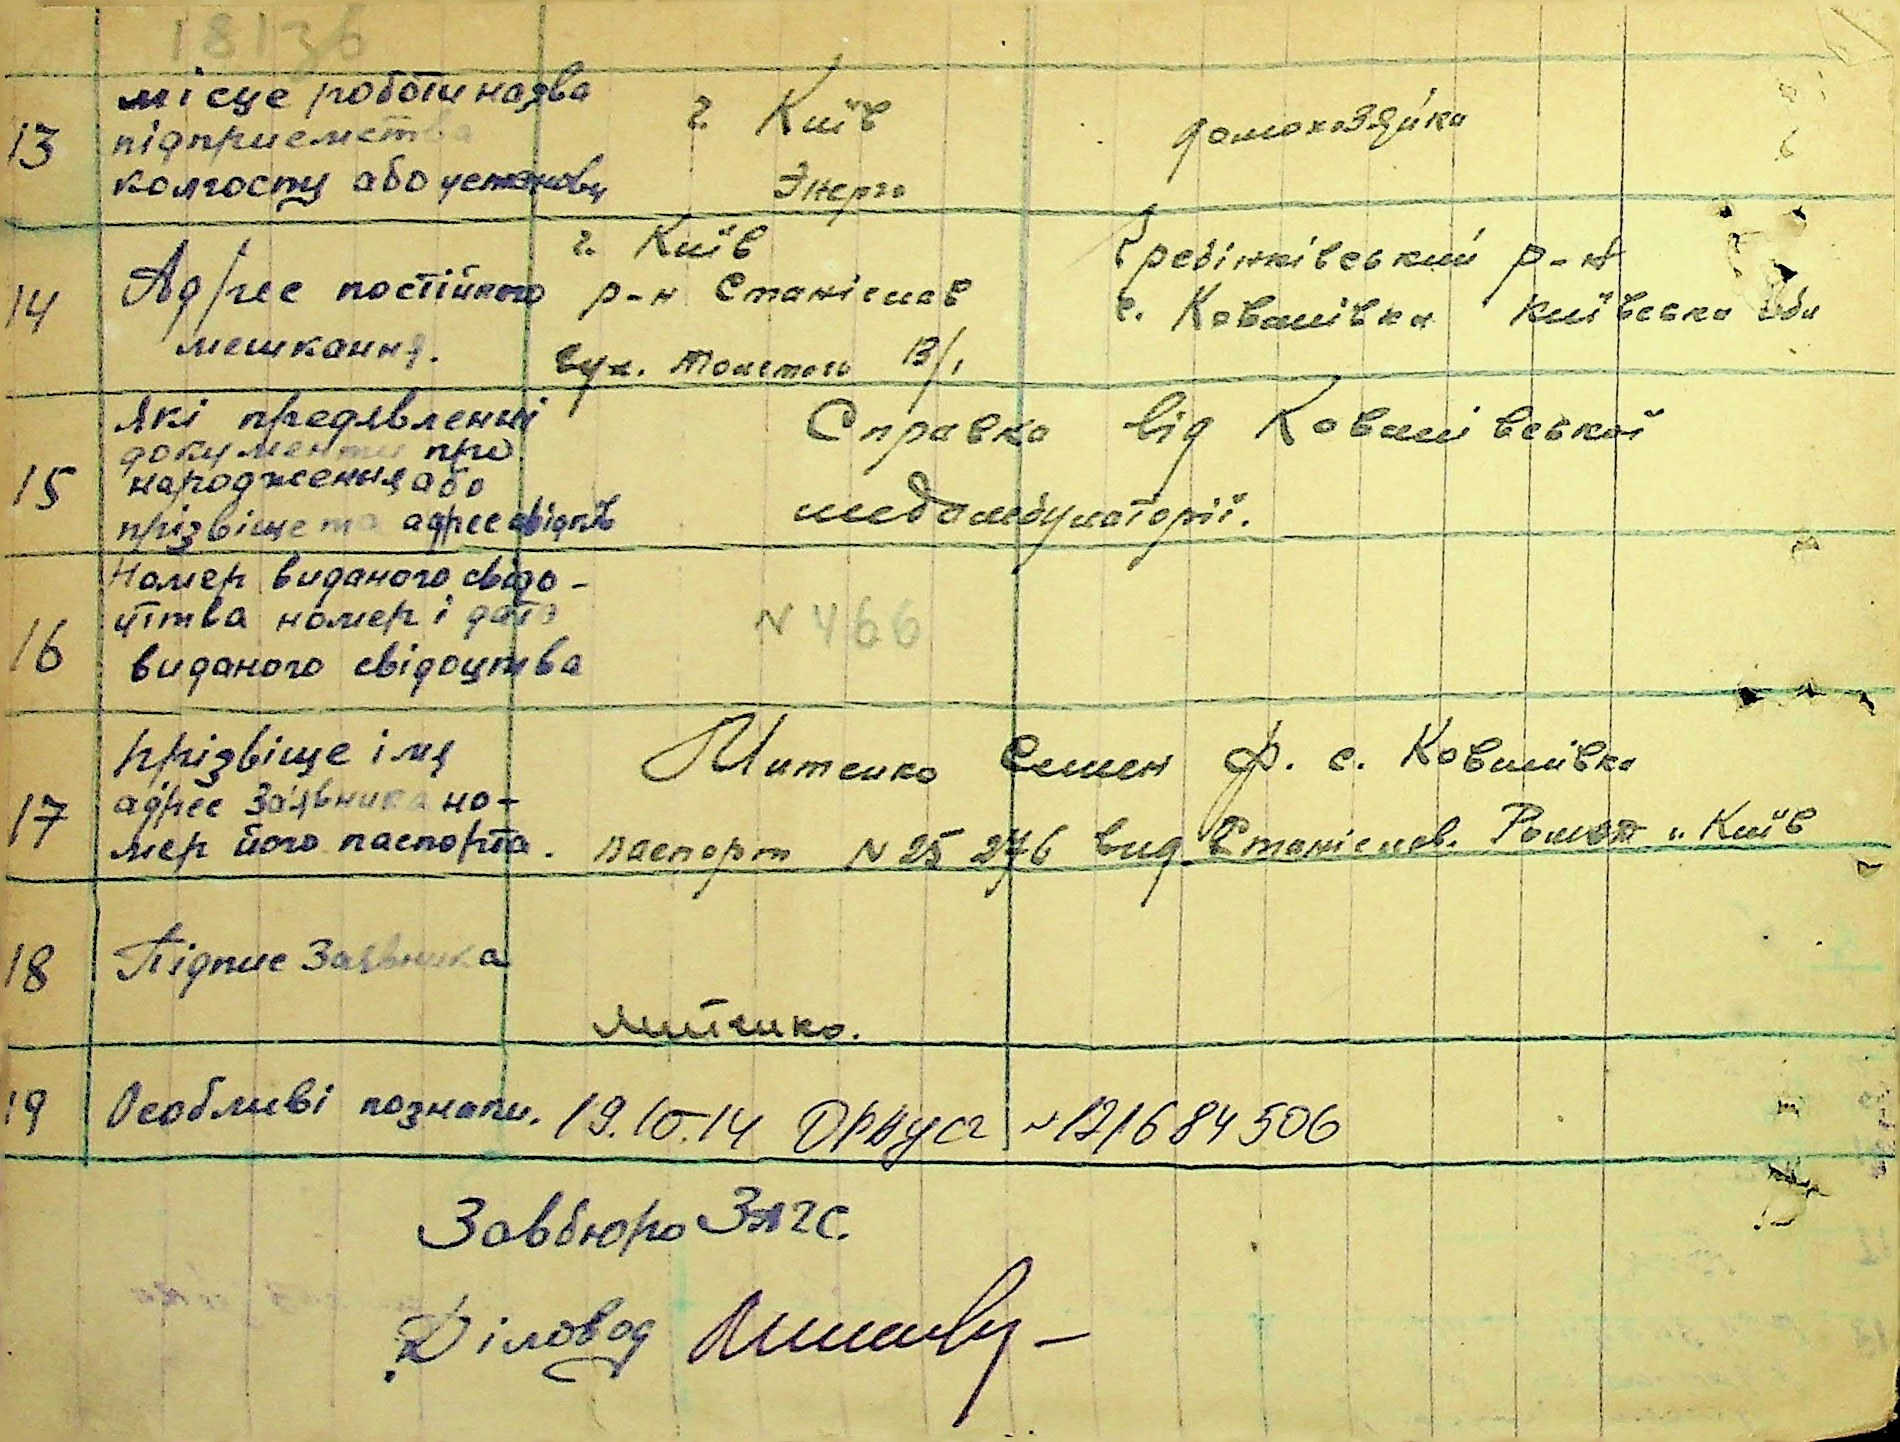 18136
13 місце роботи назва
підприємства
колгоспу або установи
г. Київ
Энерго
домохазяйка
14 Адрес постійного
мешкання.
г. Київ
р-н Станіслав
вул. Толстого 13/1
Гребінківський р-н
с. Ковалівка Київська обл
15 Які предявленні
документи про
народження або
прізвіще та адрес свідків
Справка від Ковалівської
медамбулаторії.
16 Номер виданого свідо-
цтва номер і дата
виданого свідоцтва
N 466
17 прізвіще імя
адрес Заявника но-
мер його паспорта.
Митенко Семен Ф. с. Ковалівка
паспорт N 25 276 вид. Станіслав. Київ
18 Підпис Заявника
Митенко.
19 Особливі познапи. 19.10.14 №121684506
Завбюро Загс.
Діловод